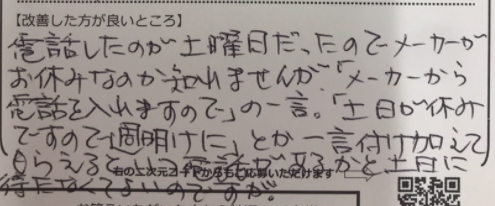 【改善した方が良いところ】
電話したのが土曜日だったのでメーカーが
お休みなのか知れませんが、「メーカーから
電話を入れますので」の一言。「土日が休み
ですので週明けに」とか一言付け加えて
もらえるといつ電話があるかと土日に
右の二次元コードからもご応募いただけます
待たなくてよいのですが。